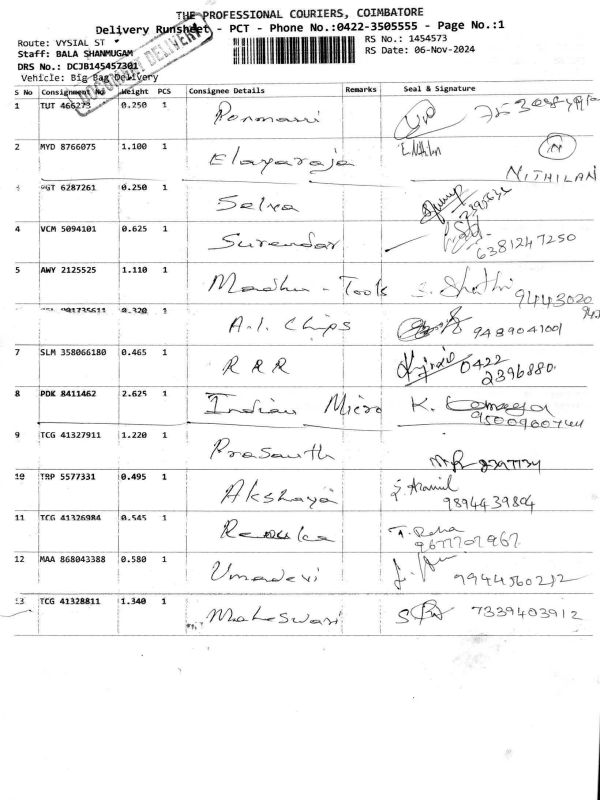 THE PROFESSIONAL COURIERS, COIMBATORE
Delivery Runsheet - PCT - Phone No.:0422-3505555 - Page No.:1
Route: VYSIAL ST
RS No.: 1454573
Staff: BALA SHANMUGAM
RS Date: 06-Nov-2024
DRS No.: DCJB145457301
Vehicle: Big Bag Delivery
DOCUMENT DELIVERY
S No Consignment No Weight PCS Consignee Details Remarks Seal & Signature
1 TUT 466273 0.250 1 Ponmani
2 MYD 8766075 1.100 1 Elayaraja E.Nithilan
NITHILAN
GT 6287261 0.250 1 Selva
4 VCM 5094101 0.625 1 Surendar 6381247250
5 AWY 2125525 1.110 1 Madhu - Tools 9443020
0.320 1 A.I. Chips 9489041001
7 SLM 358066180 0.465 1 R R R 0422
2396880
8 PDK 8411462 2.625 1 Indian Micro K.
9 TCG 41327911 1.220 1 Prasanth
10 TRP 5577331 0.495 1 Akshaya 9894439804
11 TCG 41326984 0.545 1 Renuka T. Radha
9677707967
12 MAA 868043388 0.580 1 Umadevi 9944560212
13 TCG 41328811 1.340 1 Maheswari 7339403912